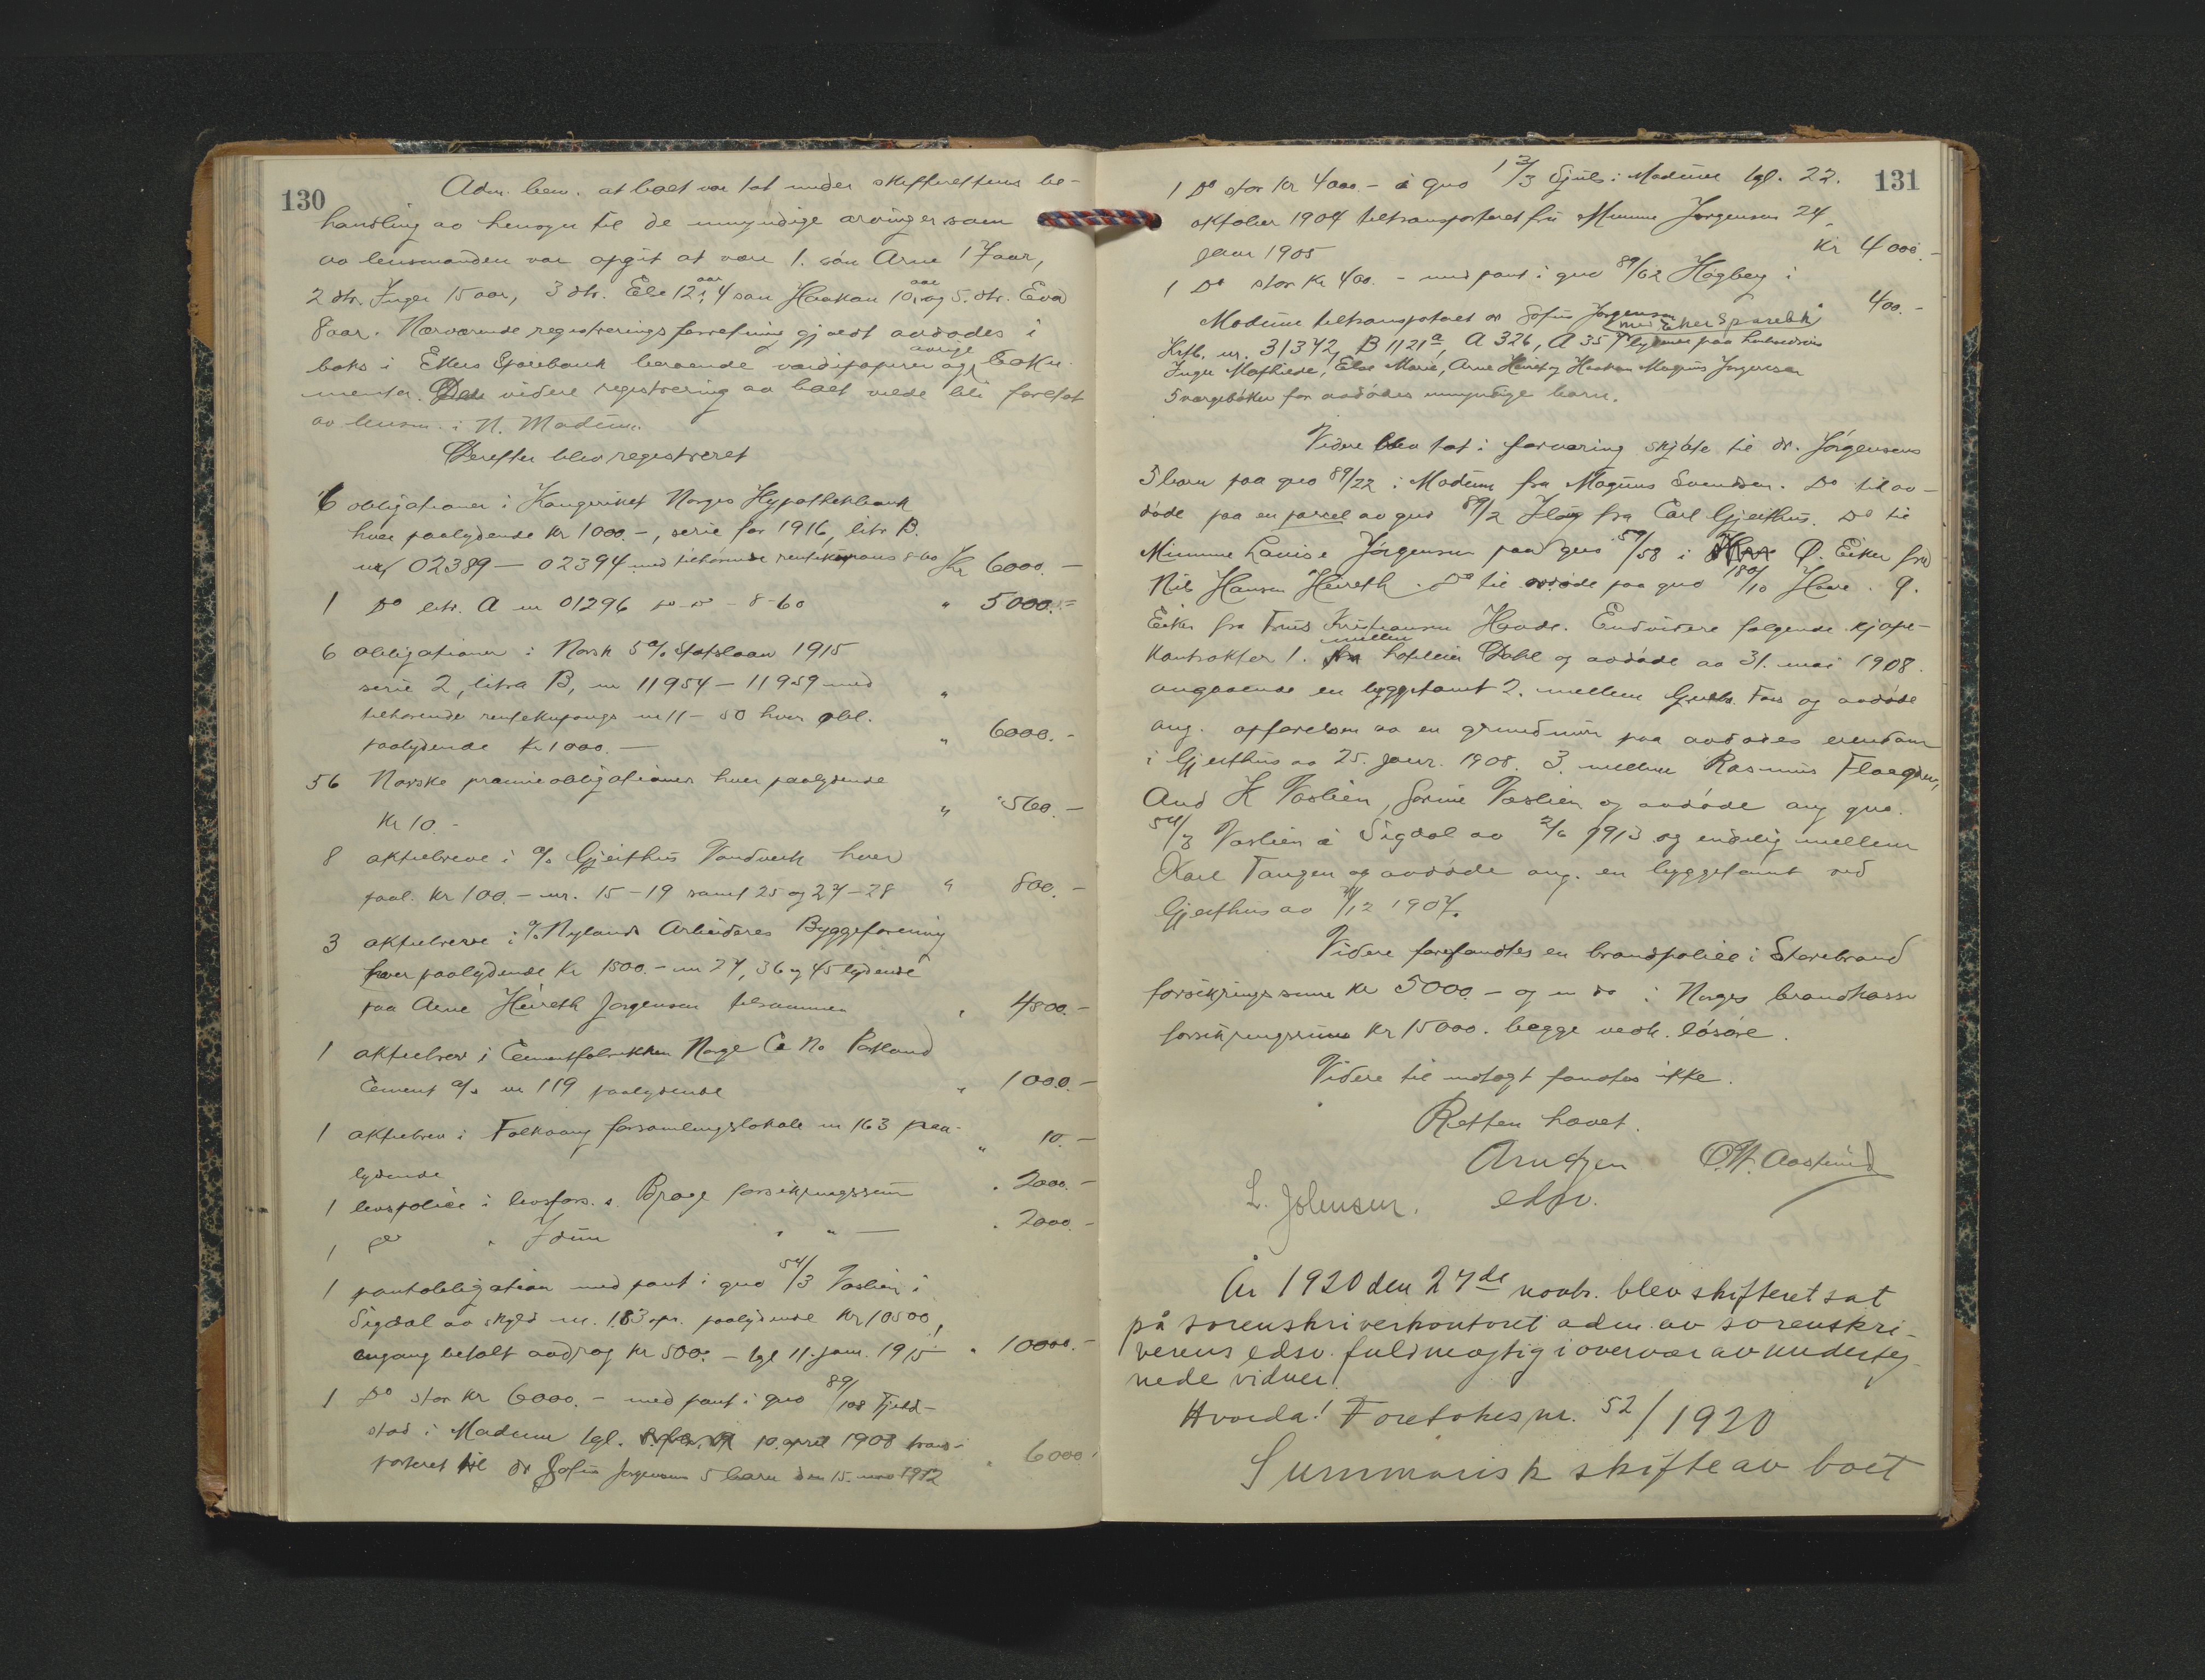 130
Adm. bem. at boet var tat under skifterettens be-
handling av hensyn til de umyndige arvinger som
av lensmanden var opgit at være 1. søn Arne 17 aar,
2 dtr. Inger 15 aar, 3 dtr. Else 12 aar, 4 søn Haakon 10 aar og 5. dtr. Eva
8 aar. Nærværende registreringsforretning gjældt avdødes i
boks i Ekers Sparebank beroende værdipapirer og øvrige doku-
menter. Den videre registrering av boet vilde bli foretat
av lensm. i N. Modum.
Derefter blev registreret
6 obligationer i Kongeriket Norges Hypothekbank
hver paalydende Kr 1000.-, serie for 1916, litr B.
nr 02389 – 02394 med tilhørende rentekupons 8-60 Kr 6000.-
1 Do litr. A nr 01296 do do - 8-60 " 5000.-
6 obligationer i Norsk 5 % Statslaan 1915
serie 2, litra B, nr 11954 – 11959 med
tilhørende rentekupongs nr 11 – 50 hver obl.
paalydende Kr 1000.- " 6000.-
56 Norske præmieobligationer hver paalydende
Kr 10.- " 560.-
8 aktiebreve i A/S Gjeithus Vandverk hver
paal. Kr 100.- nr. 15 – 19 samt 25 og 27 – 28 " 800.-
3 aktiebreve i A/S Nylands Arbeideres Byggeforening
hver paalydende Kr 1500.- nr 27, 36 og 45 lydende
paa Arne Heireth Jørgensen tilsammen " 4800.-
1 aktiebrev i Cementfabrikken Norge Co No Portland
Cement A/S nr 119 paalydende " 1000.-
1 aktiebrev i Folkvang forsamlingslokale nr 163 paa-
lydende " 10.-
1 livspolice i livsfors. s. Brage forsikringssum " 2000.-
1 do " Idun " " — " 2000.-
1 pantobligation med pant i gno 54/3 Vaslien i
Sigdal av skyld m. 1.83 opr. paalydende Kr 10500,
engang betalt avdrag kr 500.- tgl 11. jan. 1915 " 10000.-
1 Do stor kr 6000.- med pant i gno 89/108 Fjeld-
stad i Modum tgl. 10. april 1908 trans-
porteret til dr Sofus Jørgensens 5 barn den 15. 1912 " 6000.-
131
1 Do stor Kr 4000.- i gno 13/3 i Modum tgl. 22.
oktober 1904 tiltransporteret fru Mimmi Jørgensen 24
jan 1905 Kr 4000.-
1 Do stor Kr 400.- med pant i gno 89/62 Høgberg i
Modum tiltransporteret dr Sofus Jørgensen 400.-
Krtb. nr. 31372, B 1121a, A 326, A 357 lydende paa
Inger Mathilde, Else Marie, Arne Heiret og Haakon Magnus Jørgensen
5 værgebøker for avdødes umyndige barn.
Videre blev tat i forvaring skjøte til dr. Jørgensens
5 barn paa gno 89/22 i Modum fra Magnus Svendsen. Do til av-
døde paa en parcel av gno 89/2 fra Carl Gjeithus. Do til
Mimmi Louise Jørgensen paa gno 57/58 i Ø. Eiker fra
Nils Hansen Heireth. Do til avdøde paa gno 180/10 Hoave. Ø.
Eiker fra Kristiansen . Endvidere følgende kjøpe-
kontrakter 1. mellem Dahl og avdøde av 31. mai 1908.
angaaende en byggetomt 2. mellem og avdøde
ang. opførelsen av en grundmur paa avdødes eiendom
i Gjeithus av 25. jan. 1908. 3. mellem Rasmus
And K Vaslien, Vaslien og avdøde ang gno.
54/3 Vaslien i Sigdal av 2/6 1913 og endelig mellem
Karl Tangen og avdøde ang. en byggetomt ved
Gjeithus av /12 1907.
Videre forefandtes en brandpolice i Storebrand
forsikringssum kr 5000.- og en do i Norges brandkasse
forsikringssum kr 15000. begge vedk. løsøre.
Videre til indtægt fandtes ikke.
Retten hævet.
Arntzen
edsv.
L. Johnsen.
År 1920 den 27de novbr. blev skifteret sat
på sorenskriverkontoret adm. av sorenskri-
verens edsv. fuldmægtig i overvær av underteg-
nede vidner.
Hvorda! Foretokes nr. 52/1920
Summarisk skifte av boet